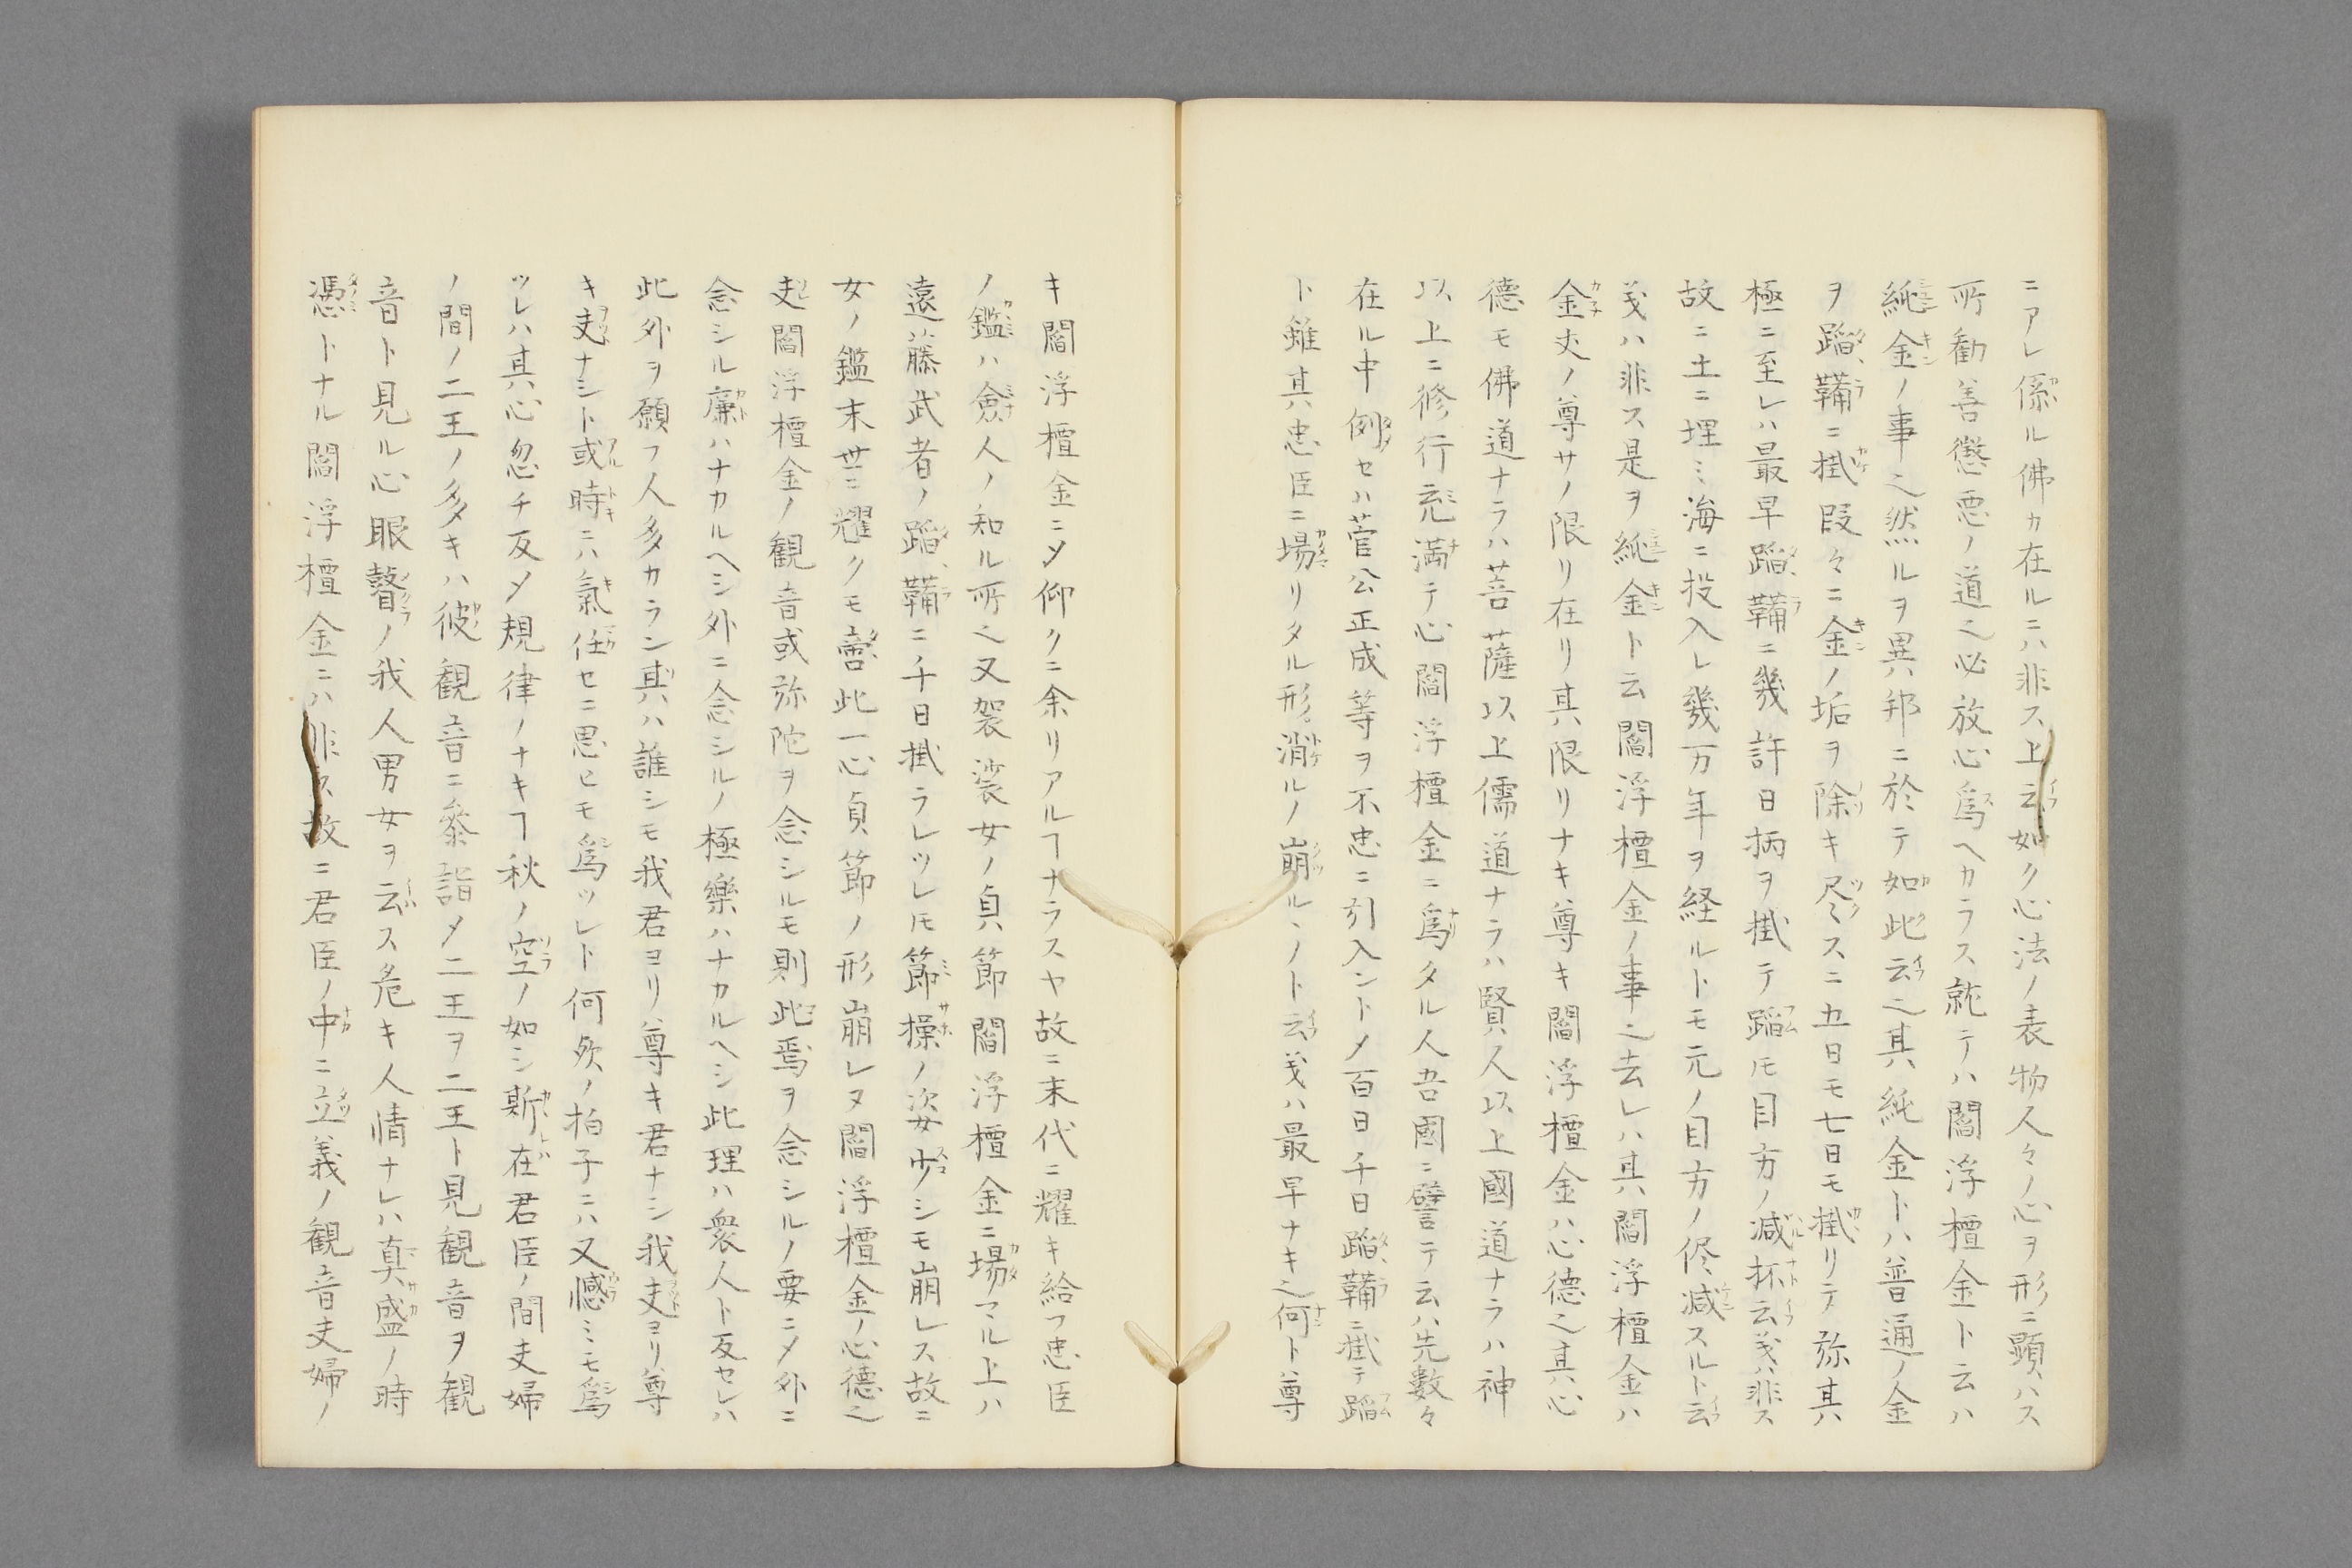 ニアレ係ル佛カ在ルニハ非ス上云如ク心法ノ表物人々ノ心ヲ形ニ顕ハス
所勸善懲悪ノ道之必放心爲ヘカラス就テハ閻浮檀金ト云ハ
純金ノ事之然ルヲ異邦ニ於テ如此云之其純金ト八普通ノ金
ヲ蹈鞴ニ掛段々ニ金ノ垢ヲ除キ尽スニ五日モ七日モ掛リテ弥其
極ニ至レハ最早蹈鞴ニ幾許日柄ヲ掛テ蹈𪜈目方ノ減抔云義ハ非ス
故ニ土ニ埋ミ海ニ投入レ幾万年ヲ経ルトモ元ノ目方ノ侭減スルト云
義ハ非ス是ヲ純金ト云閻浮檀金ノ事之去レハ其閻浮檀金ハ
金丈ノ尊サノ限リ在リ其限リナキ尊キ閻浮檀金ハ心德之其心
德モ佛道ナラハ菩薩以上儒道ナラハ賢人以上國道ナラハ神
以上ニ修行充満テ心閻浮檀金ニ爲タル人吾國ニ譬テ云ハ先數々
在ル中例セハ菅公正成等ヲ不忠ニ引入ントメ百日千日蹈鞴ニ掛テ蹈
ト雖其忠臣ニ場リタル形消ルノ崩ル丶ノト云義ハ最早ナキ之何ト尊
キ閻浮檀金ニメ仰クニ余リアルヿナラスヤ故ニ末代ニ耀キ給フ忠臣
ノ鑑ハ僉人ノ知ル所之又袈裟女ノ貞節閻浮檀金ニ場マル上ハ
遠藤武者ノ蹈鞴ニ千日掛ラレツレ𪜈節操ノ姿少シモ崩レス故ニ
女ノ鑑末世ニ耀クモ此一心貞節ノ形崩レヌ閻浮檀金ノ心德之
夫閻浮檀金ノ観音或弥陀ヲ念シルモ則此焉ヲ念シルノ要ニメ外ニ
念シル廉ハナカルヘシ外ニ念シルノ極樂ハナカルヘシ此理ハ衆人ト反セレハ
此外ヲ願フ人多カラン其ハ誰シモ我君ヨリ尊キ君ナシ我夫ヨリ尊
キ夫ナシト或時ニハ氣任セニ思ヒモ爲ツレト何欤ノ拍子ニハ又憾ミモ爲
ツレハ其心忽チ反メ規律ノナキヿ秋ノ空ノ如シ斯在君臣ノ間夫婦
ノ間ノ二王ノ多キハ彼観音ニ参詣メ二王ヲ二王ト見観音ヲ観
音ト見ル心眼瞽ノ我人男女ヲ云ス危キ人情ナレハ真盛ノ時
憑トナル閻浮檀金ニハ非ス故ニ君臣ノ中ニ立義ノ観音夫婦ノ